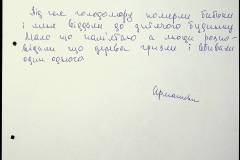 Від час голодомору померли батьки
і мене віддали до дитячого будинку
Мало що пам'ятаю а люди розпо-
відали що дерева гризли і вбивали
один одного